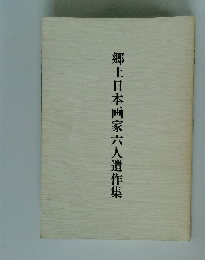 郷土日本画家六人遺作集